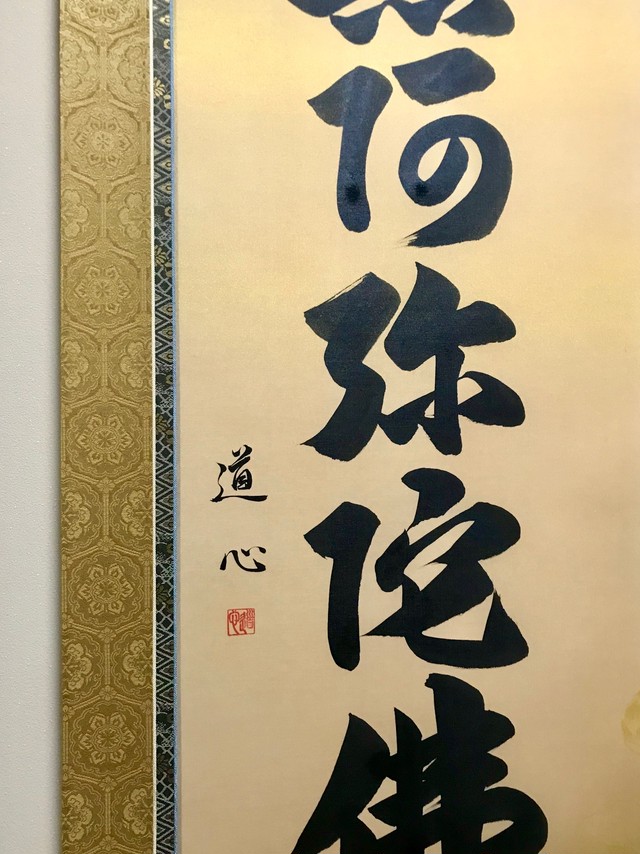 阿弥陀佛
道心